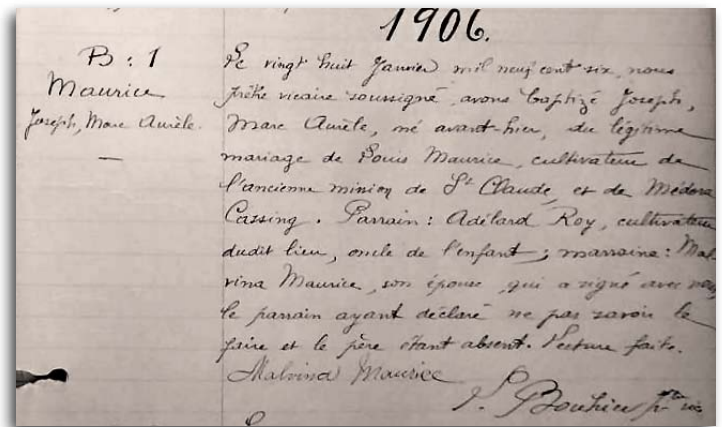 1906.
B : 1
Maurice
Joseph, Marc Aurèle.
—
Le vingt huit Janvier mil neuf cent six, nous
prêtre vicaire soussigné, avons baptizé Joseph,
Marc Aurèle, né avant-hier, du légitime
mariage de Louis Maurice, cultivateur de
l'ancienne mission de St Claude, et de Médora
Cassing. Parrain : Adélard Roy, cultivateur
dudit lieu, oncle de l'enfant ; marraine : Mal
vina Maurice, son épouse, qui a signé avec nous,
le parrain ayant déclaré ne pas savoir le
faire et le père étant absent. Lecture faite.
Malvina Maurice